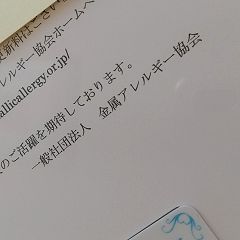 更新料はござい
レルギー協会ホームペ
allicallergy.or.jp/
のご活躍を期待しております。
一般社団法人 金属アレルギー協会